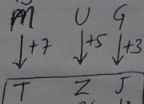 M U G
↓+7 ↓+5 ↓+3
T Z J